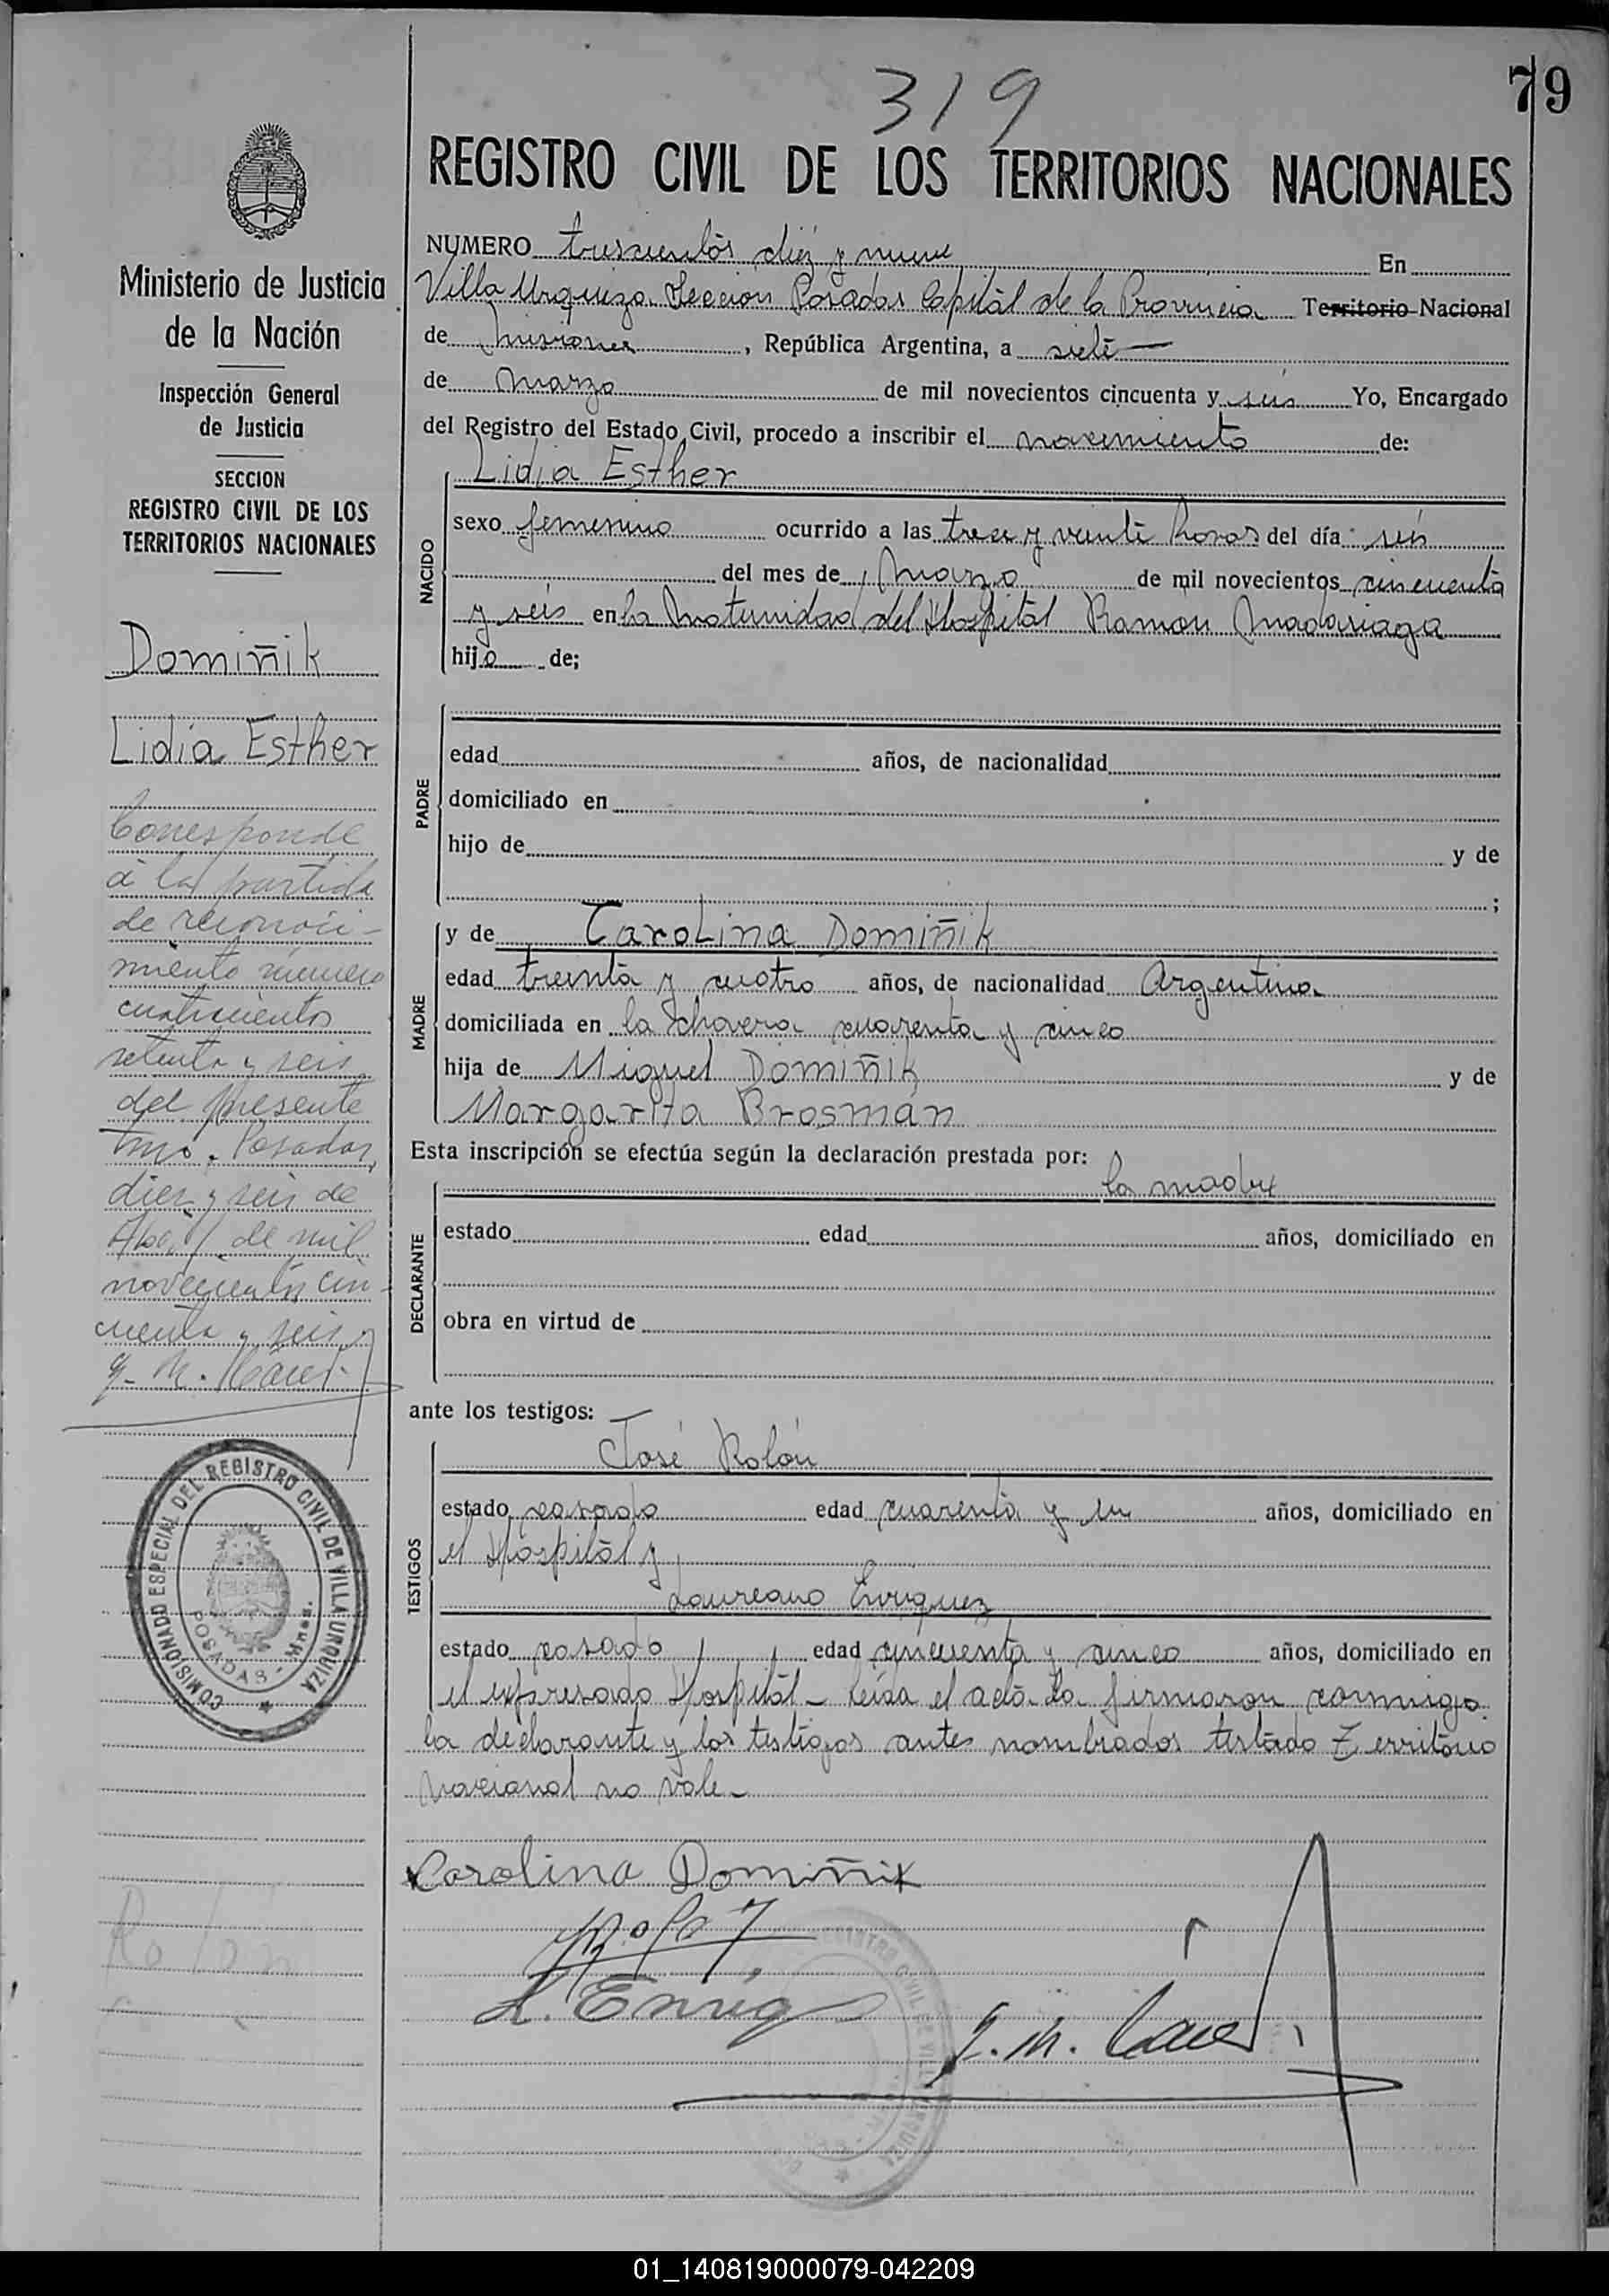 79
319
REGISTRO CIVIL DE LOS TERRITORIOS NACIONALES
Ministerio de Justicia
de la Nación
Inspección General
de Justicia
SECCION
REGISTRO CIVIL DE LOS
TERRITORIOS NACIONALES
Domiñik
Lidia Esther
Corresponde
a la partida
de reconoci-
miento número
cuatrocientos
setenta y seis
del presente
tomo. Posadas,
diez y seis de
Abril de mil
novecientos cin-
cuenta y seis
COMISIONADO ESPECIAL DEL REGISTRO CIVIL DE VILLA URQUIZA
POSADAS - Mnes.
Rolón
NUMERO trescientos diez y nueve En
Villa Urquiza Sección Posadas Capital de la Provincia Territorio Nacional
de Misiones, República Argentina, a siete
de Marzo de mil novecientos cincuenta y seis Yo, Encargado
del Registro del Estado Civil, procedo a inscribir el nacimiento de:
NACIDO
Lidia Esther
sexo femenino ocurrido a las trece y veinte horas del día seis
del mes de Marzo de mil novecientos cincuenta
y seis en la Maternidad del Hospital Ramón Madariaga
hijo de;
PADRE
edad años, de nacionalidad
domiciliado en
hijo de y de
;
MADRE
y de Carolina Domiñik
edad treinta y cuatro años, de nacionalidad Argentina
domiciliada en la chacra cuarenta y cinco
hija de Miguel Domiñik y de
Margarita Brosman
Esta inscripción se efectúa según la declaración prestada por:
DECLARANTE
la madre
estado edad años, domiciliado en
obra en virtud de
ante los testigos:
TESTIGOS
José Rolón
estado casado edad cuarenta y un años, domiciliado en
el Hospital y
Laureano Enriquez
estado casado edad cincuenta y cinco años, domiciliado en
el expresado Hospital - Leída el acta la firmaron conmigo
la declarante y los testigos antes nombrados testado Territorio
Nacional no vale -
Carolina Domiñik
L. Enriq
01_140819000079-042209